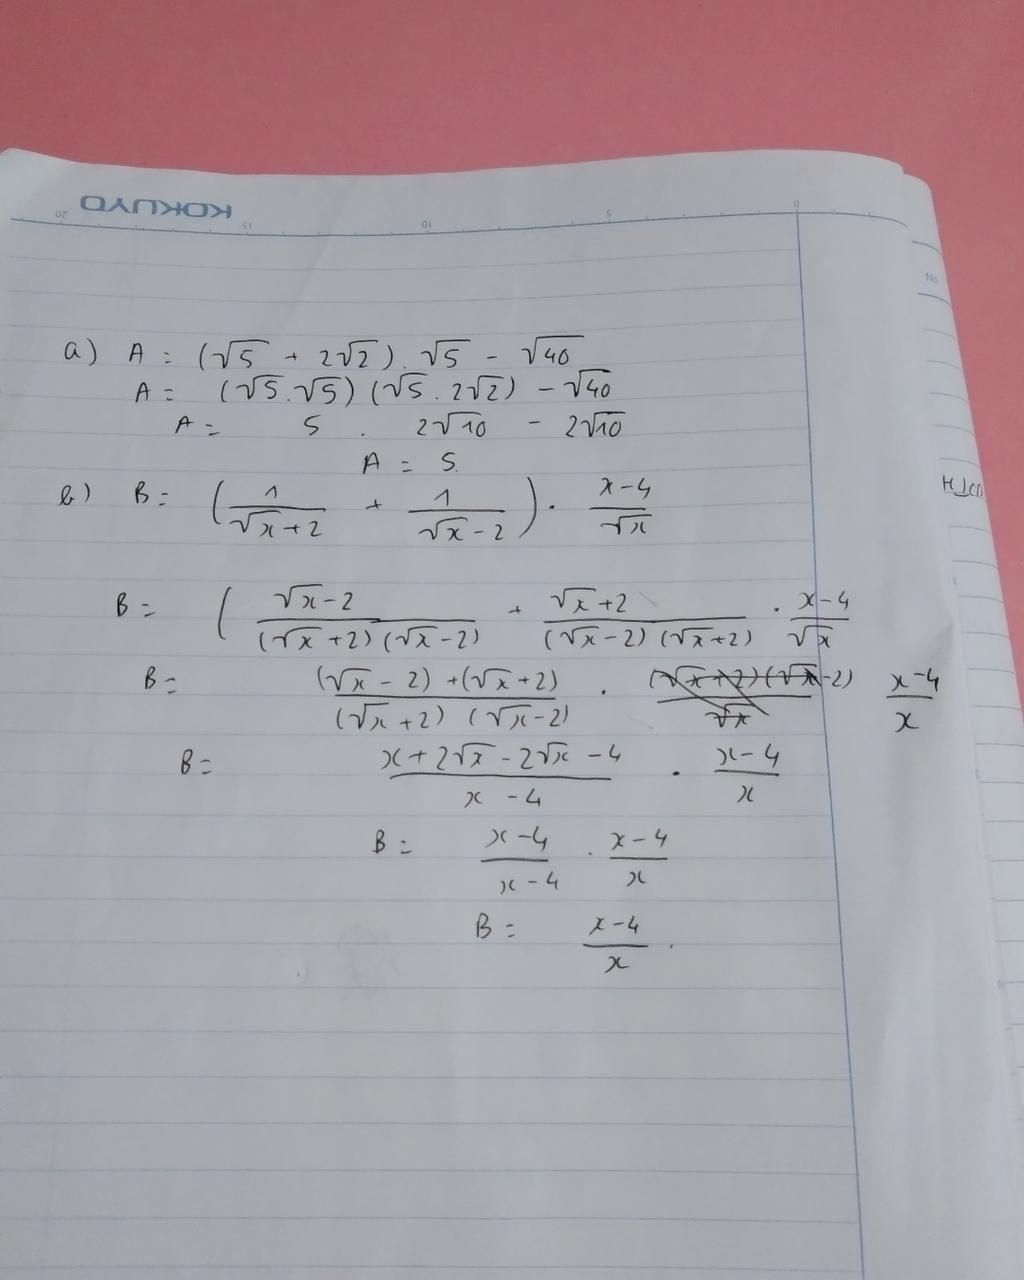 KOKUYO
20 15 10 5 0
a) A = (√5 + 2√2).√5 - √40
A = (√5.√5) (√5.2√2) - √40
A = 5 . 2√10 - 2√10
A = 5.
b) B = (1/(√x+2) + 1/(√x-2)) . (x-4)/√x
B = ( (√x-2)/((√x+2)(√x-2)) + (√x+2)/((√x-2)(√x+2)) . (x-4)/√x
B = ((√x-2)+(√x+2))/((√x+2)(√x-2)) . ((√x+2)(√x-2))/√x (x-4)/x
B = (x+2√x-2√x-4)/(x-4) . (x-4)/x
B = (x-4)/(x-4) . (x-4)/x
B = (x-4)/x .
No